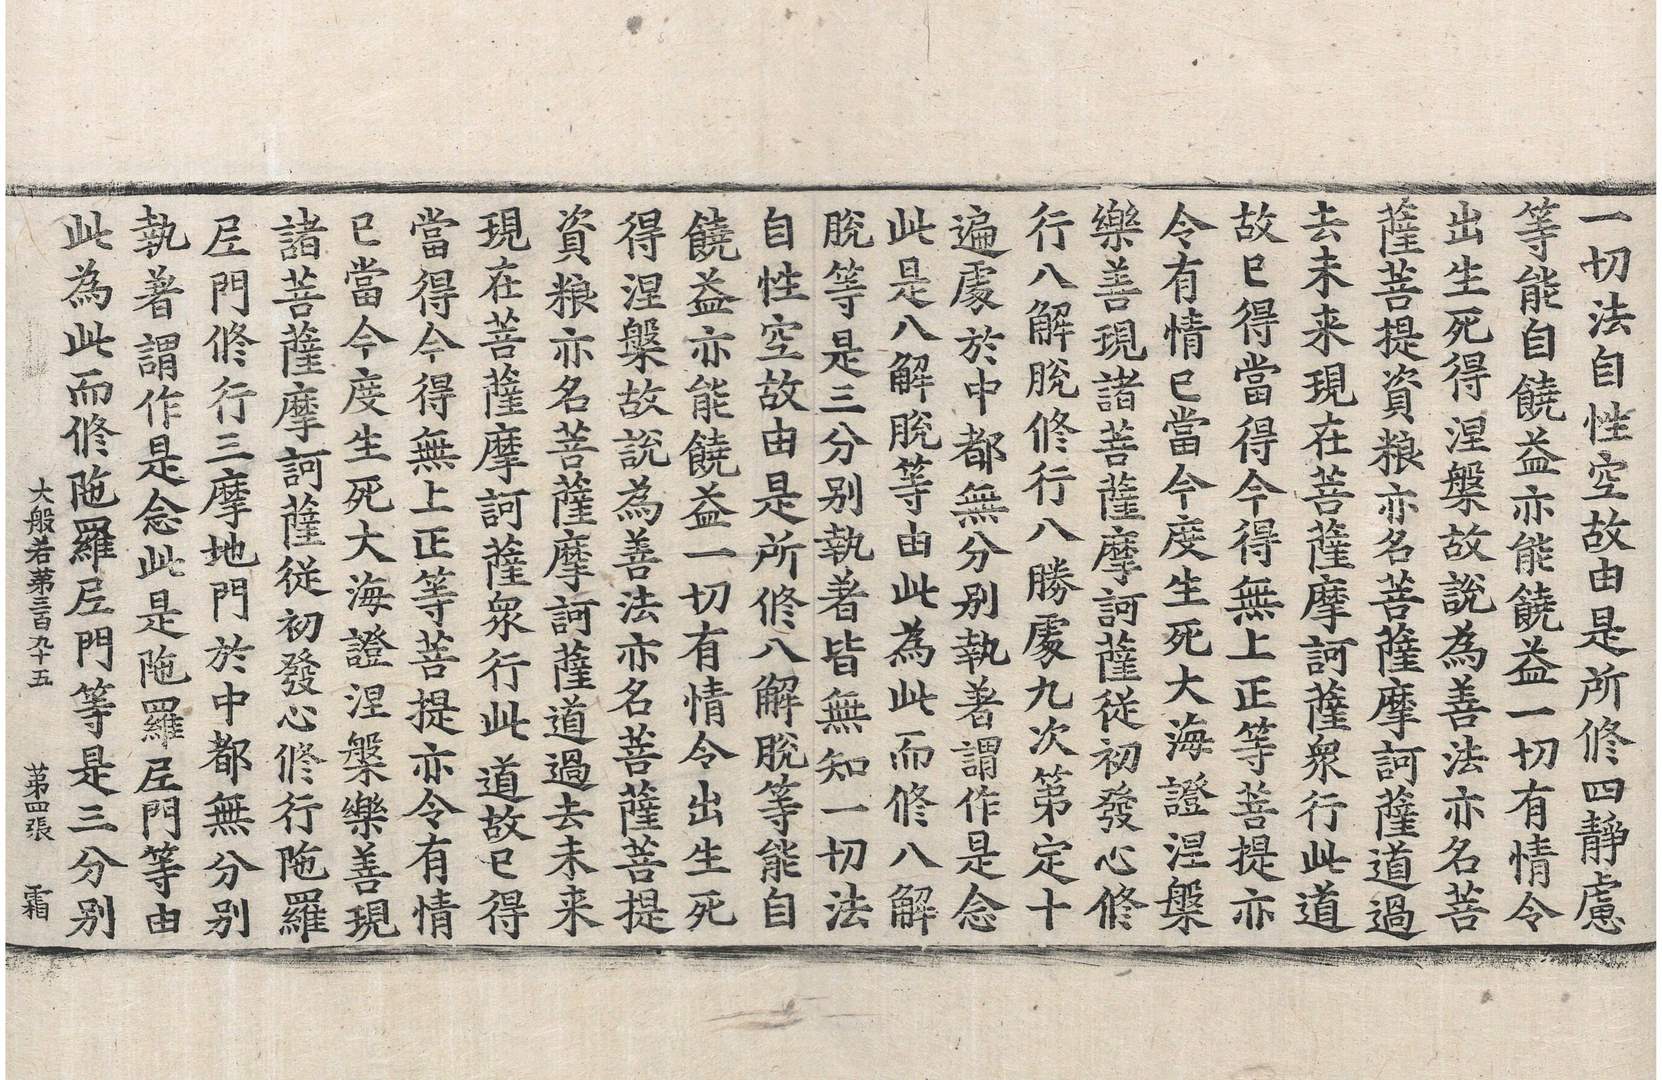 一切法自性空故由是所修四靜慮
等能自饒益亦能饒益一切有情令
出生死得涅槃故說為善法亦名菩
薩菩提資粮亦名菩薩摩訶薩道過
去未来現在菩薩摩訶薩衆行此道
故已得當得今得無上正等菩提亦
令有情已當今度生死大海證涅槃
樂善現諸菩薩摩訶薩從初發心修
行八解脫修行八勝處九次第定十
遍處於中都無分別執著謂作是念
此是八解脫等由此為此而修八解
脫等是三分別執著皆無知一切法
自性空故由是所修八解脫等能自
饒益亦能饒益一切有情令出生死
得涅槃故說為善法亦名菩薩菩提
資粮亦名菩薩摩訶薩道過去未来
現在菩薩摩訶薩衆行此道故已得
當得今得無上正等菩提亦令有情
已當今度生死大海證涅槃樂善現
諸菩薩摩訶薩從初發心修行陁羅
尼門修行三摩地門於中都無分別
執著謂作是念此是陁羅尼門等由
此為此而修陁羅尼門等是三分別
大般若第三百九十五 第四張 霜